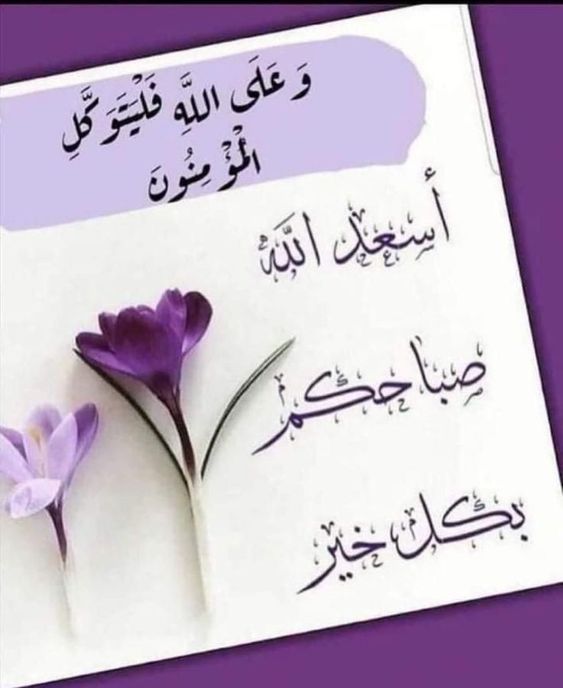 وَعَلَى اللَّهِ فَلْيَتَوَكَّلِ
الْمُؤْمِنُونَ
أسعد الله
صباحكم
بكل خير